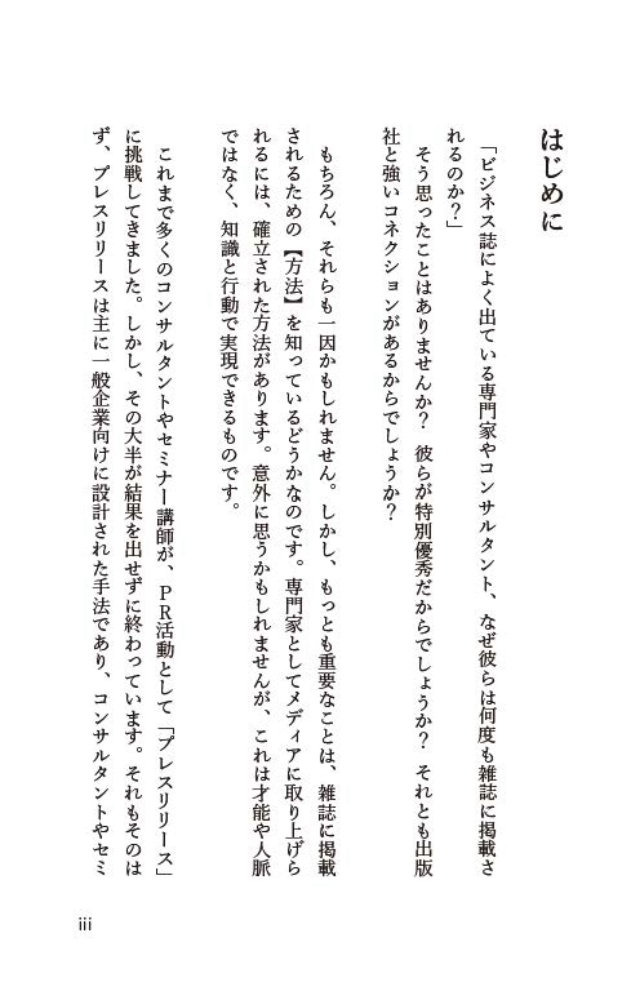 はじめに
「ビジネス誌によく出ている専門家やコンサルタント、なぜ彼らは何度も雑誌に掲載さ
れるのか？」
そう思ったことはありませんか？　彼らが特別優秀だからでしょうか？　それとも出版
社と強いコネクションがあるからでしょうか？
もちろん、それらも一因かもしれません。しかし、もっとも重要なことは、雑誌に掲載
されるための【方法】を知っているどうかなのです。専門家としてメディアに取り上げら
れるには、確立された方法があります。意外に思うかもしれませんが、これは才能や人脈
ではなく、知識と行動で実現できるものです。
これまで多くのコンサルタントやセミナー講師が、ＰＲ活動として「プレスリリース」
に挑戦してきました。しかし、その大半が結果を出せずに終わっています。それもそのは
ず、プレスリリースは主に一般企業向けに設計された手法であり、コンサルタントやセミ
iii